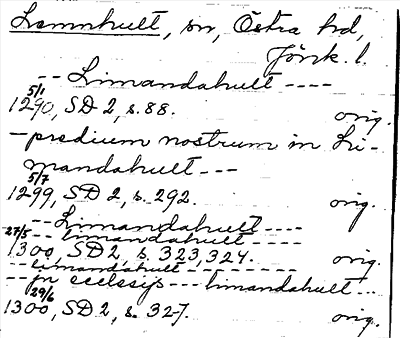 Lemnhult, sn, Östra hd,
Jönk. l.
-- Limandahult ----
5/1
1290, SD 2, s. 88. orig.
- predium nostrum in Li-
mandahult ---
5/7
1299, SD 2, s. 292. orig.
-- Limandahult ----
-- limandahult ----
27/5
1300, SD 2, s. 323, 324. orig.
-- limandahult --------
-- jn ecclesijs --- limandahult ...
29/6
1300, SD 2, s. 327. orig.